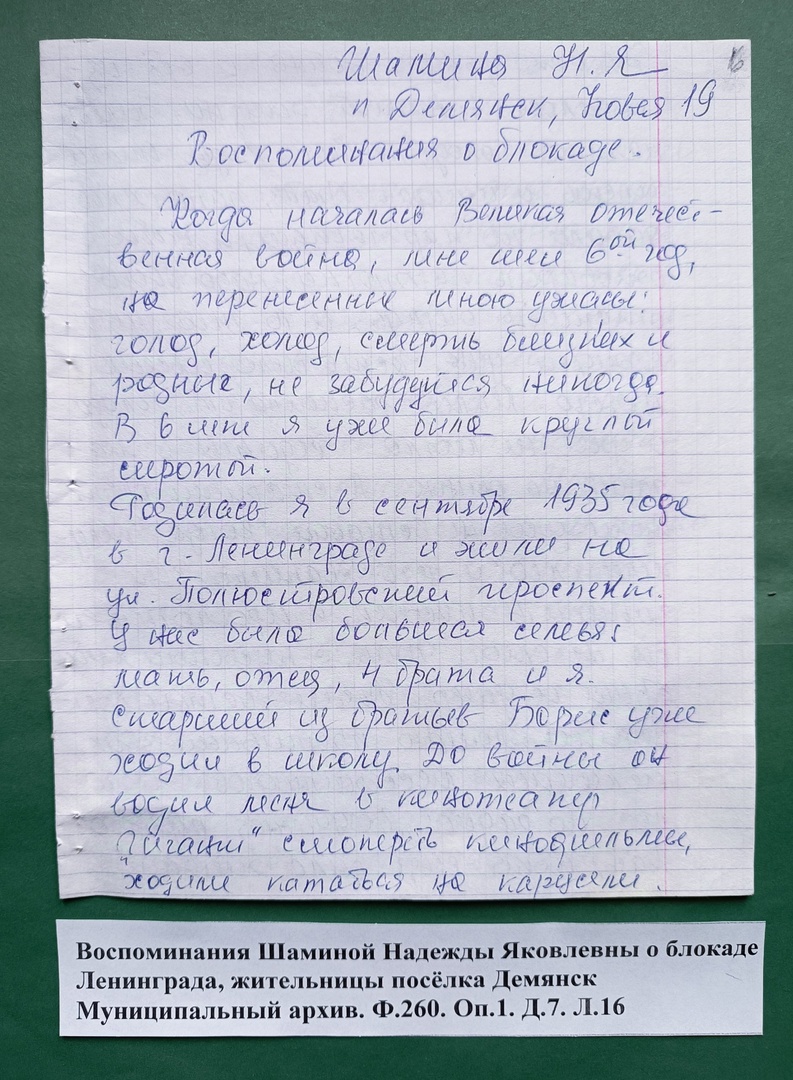 16
Шамина Н. Я
п Демянск, Новая 19
Воспоминания о блокаде.
Когда началась Великая отечест-
венная война, мне шел 6ой год,
но перенесенные мною ужасы:
голод, холод, смерть близких и
родных, не забудутся никогда.
В 6 лет я уже была круглой
сиротой.
Родилась я в сентябре 1935 года
в г. Ленинграде и жили на
ул. Полюстровский проспект.
У нас была большая семья:
мать, отец, 4 брата и я.
Старший из братьев Борис уже
ходил в школу. До войны он
водил меня в кинотеатр
"Гигант" смотреть кинофильмы,
ходили кататься на карусели.
Воспоминания Шаминой Надежды Яковлевны о блокаде
Ленинграда, жительницы посёлка Демянск
Муниципальный архив. Ф.260. Оп.1. Д.7. Л.16